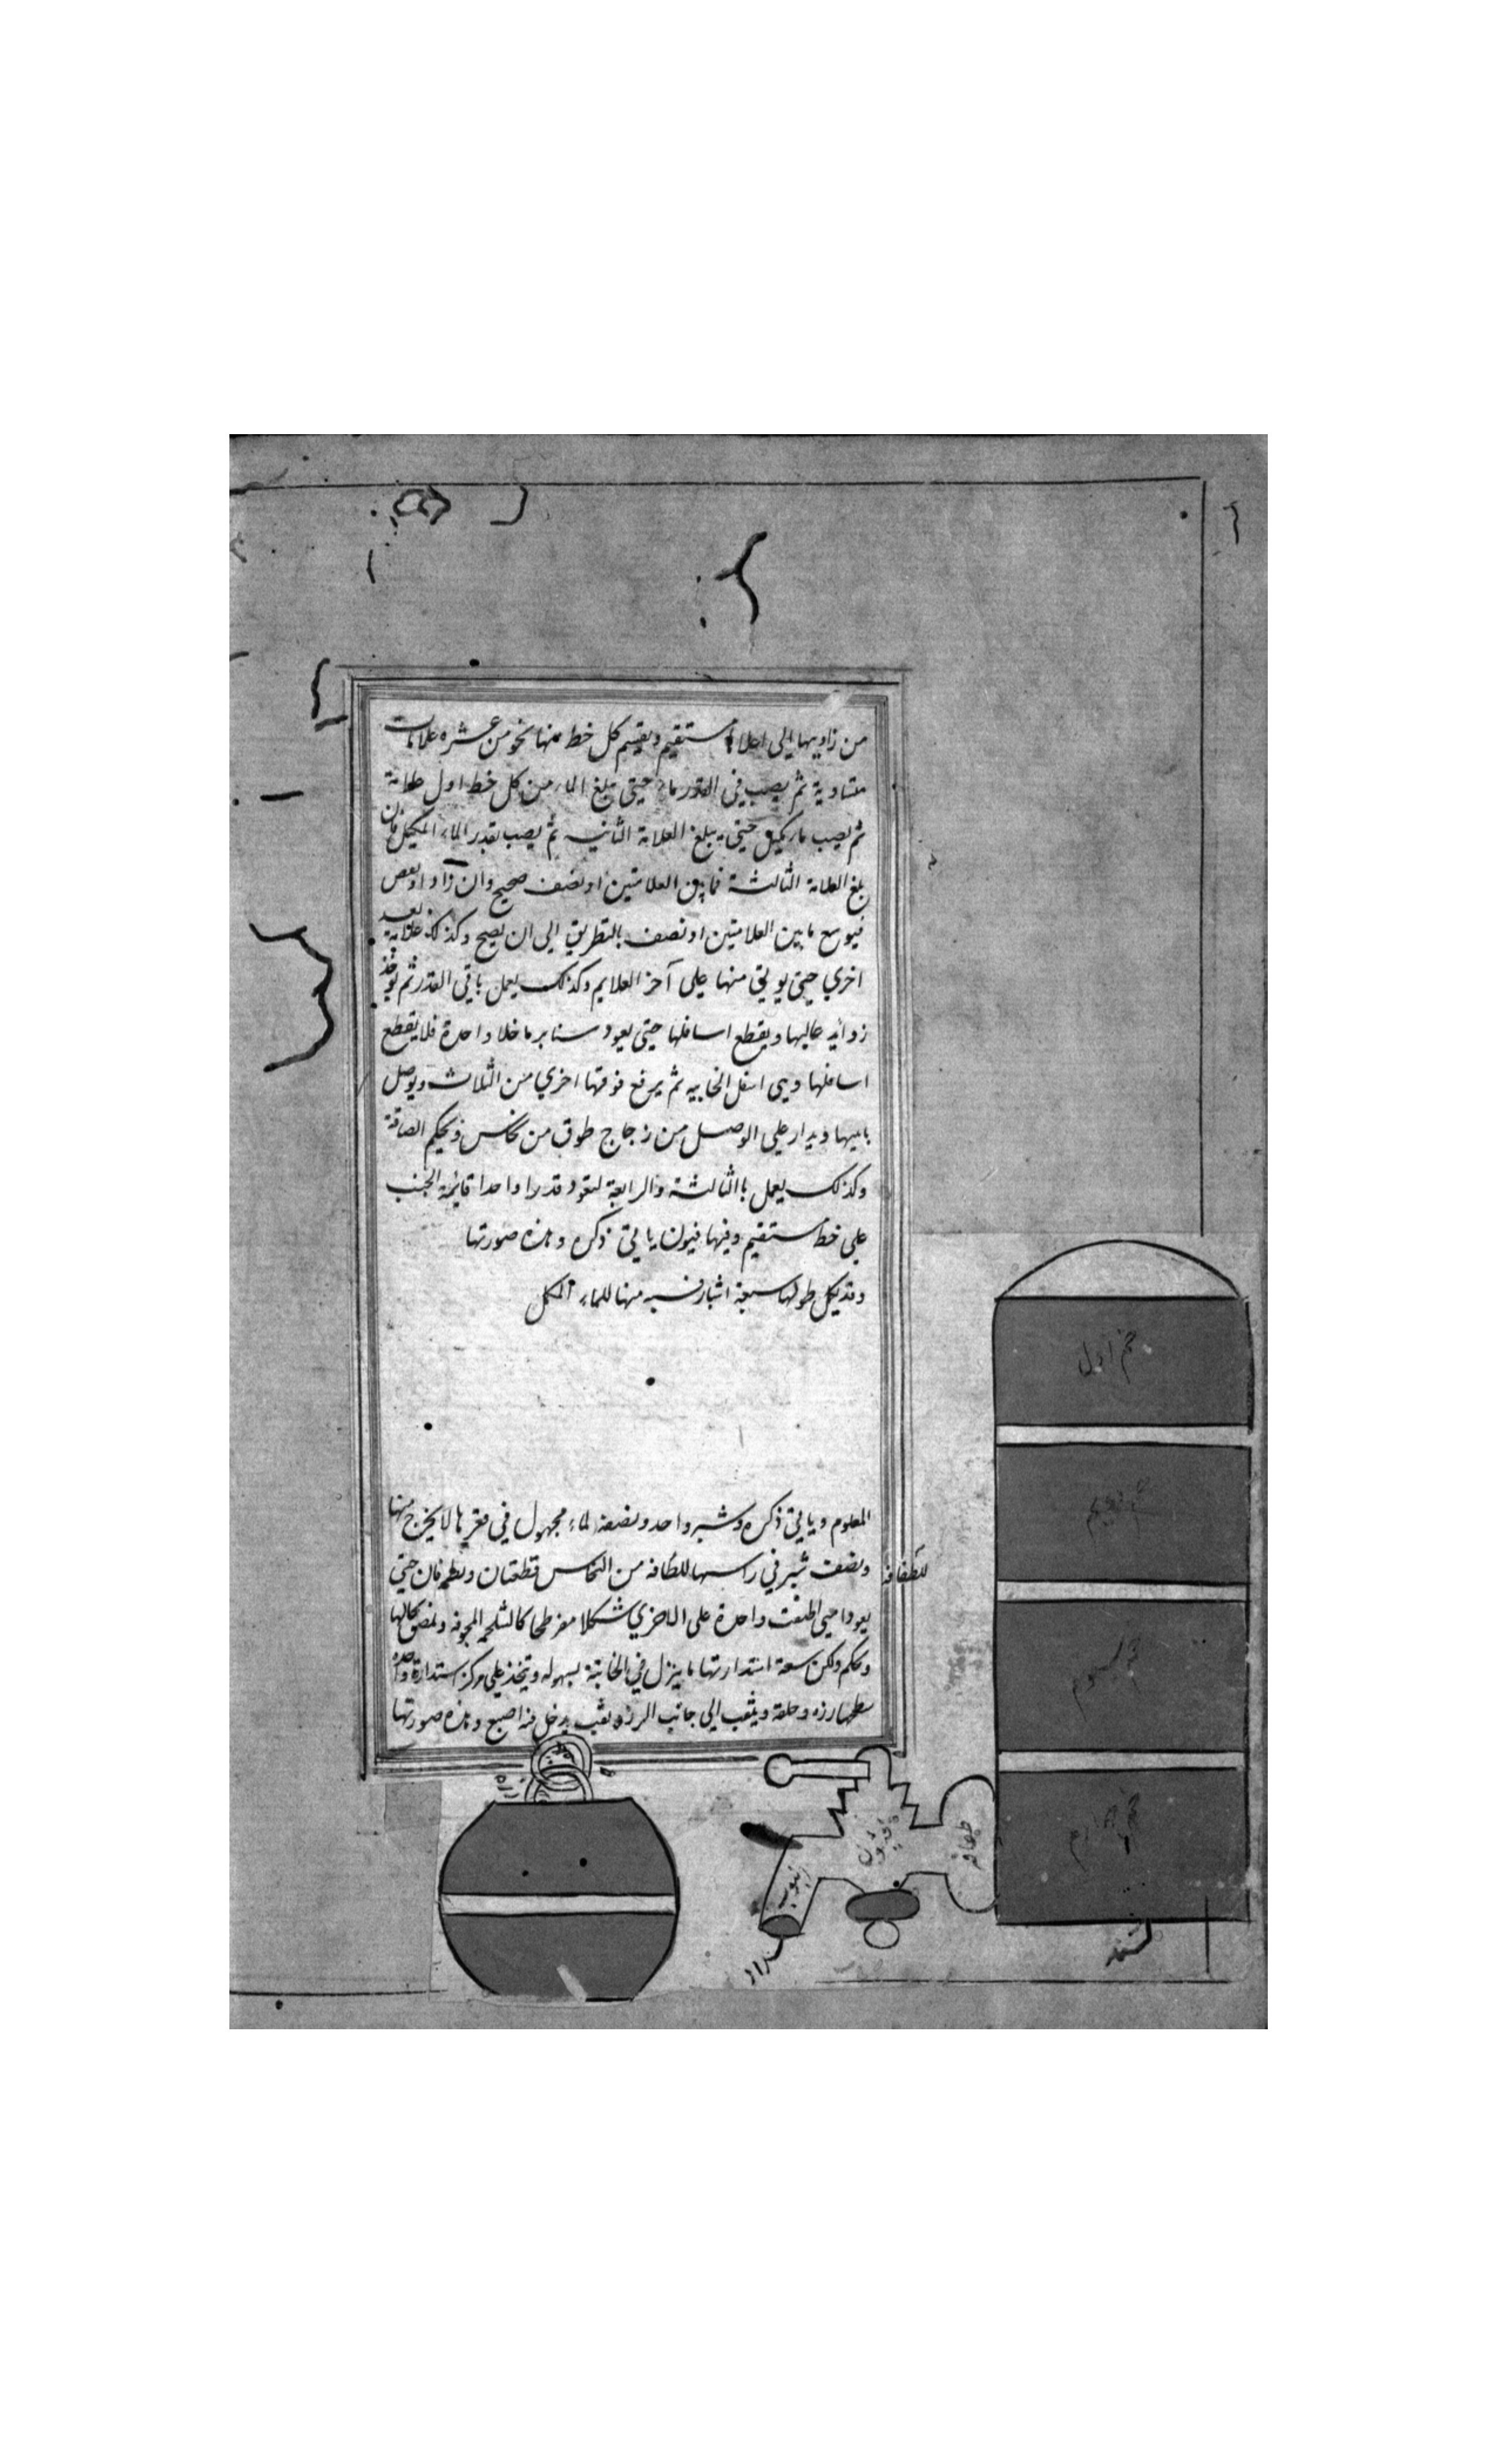 من زاويتها الى اعلاها مستقيم ويقسم كل خط منها نحو من عشره علامات
متساوية ثم يصب في القدر ماء حتى يبلغ الماء من كل خط اول علامة
ثم يصب ماء بكيل حتى يبلغ العلامة الثانيه ثم يصب بقدر الماء المكيل فان
بلغ العلامة الثالثة فما بين العلامتين او نصف صحيح وان زاد او نقص
فيوسع ما بين العلامتين او نصف بالتطريق الى ان يصح وكذلك علامة بعد
اخري حتى يوتي منها على آخر العلايم وكذلك يعمل باقي القدر ثم يوخذ
زوايد عاليها ويقطع اسافلها حتى يعود سنابر ما خلا واحدة فلا يقطع
اسافلها وهي اسفل الخابيه ثم يرفع فوقها اخري من الثلاث ويوصل
بابيها ويدار على الوصل من زجاج طوق من نحاس ويحكم الصاقة
وكذلك يعمل باالثالثة والرابعة لتعود قدرا واحدا قايمة الجنب
على خط مستقيم وفيها فيون ياتي ذكره وهذه صورتها
وقد يكل طولها سبعة اشبار خمسه منها للماء المكيل
المعلوم وياتي ذكره وشبر واحد ونصفه لماء مجهول في قعرها لا يخرج منها
ونصف شبر في راسها للطافه من النحاس قطعتان ويطرقان حتى
للطفافه
يعودا متى اطبقت واحدة على الاخري شكلا مفرطحا كالشلجمه المجوفه ويلصق بحالها
ويحكم ولكن سعة استدارتها ما ينزل في الخابية بسهوله ويتخذ على مركز استدارة واحده
سطحها رزه وحلقة ويثقب الى جانب الرزه ثقب يدخل فيه اصبع وهذه صورتها
خم اول
خم دويم
خم سيوم
خم چهارم
طفافه
انبوب